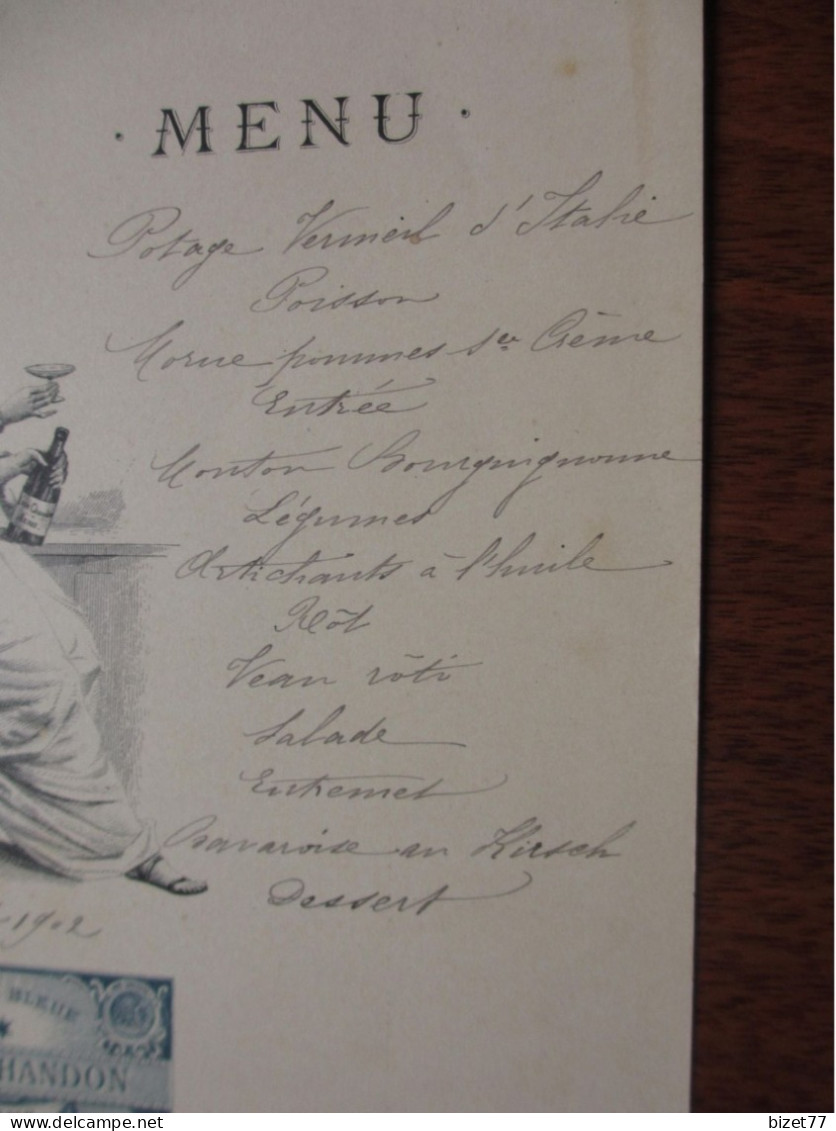 · MENU ·
Potage Vermeil d'Italie
Poisson
Morue pommes Sce Crème
Entrée
Mouton Bourguignonne
Légumes
Artichauts à l'huile
Rôt
Veau rôti
Salade
Entremet
Bavaroise au Kirsch
Dessert
1902
BLEUE
HANDON
delcampe.net
bizet77